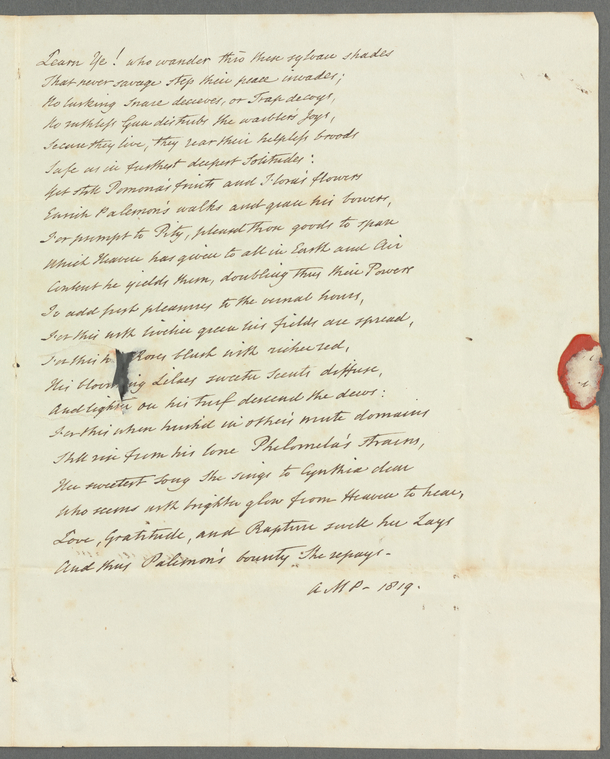 Learn Ye! who wander thro then sylvan shades
That never savage step their peace invades;
No lurking Snare deceives, or Trap decoys,
No ruthless Gun disturbs the warbler's Joys,
Secure they live, they rear their helpless broods
Safe as in furthest deepest Solitudes:
Yet still Pomona's fruits and Flora's flowers
Enrich Palemon's walks and grace his bowers,
For prompt to Pity, pleased those goods to spare
Which Heaven has given to all in Earth and Air
Content he yields them, doubling thus their Powers
To add just pleasures to the vernal hours,
For this with livelier green his fields are spread,
For this h Roses blush with richer red,
His blooming Lilacs sweeter Scents diffuse,
And lighter on his turf descend the dews:
For this when hush'd in other's mute domains
Still rise from his lone Philomela's strains,
Her sweetest Song She sings to Cynthia dear
Who seems with brighter glow from Heaven to hear,
Love, Gratitude, and Rapture swell her Lays
And thus Palemon's bounty She repays-
A M P- 1819.